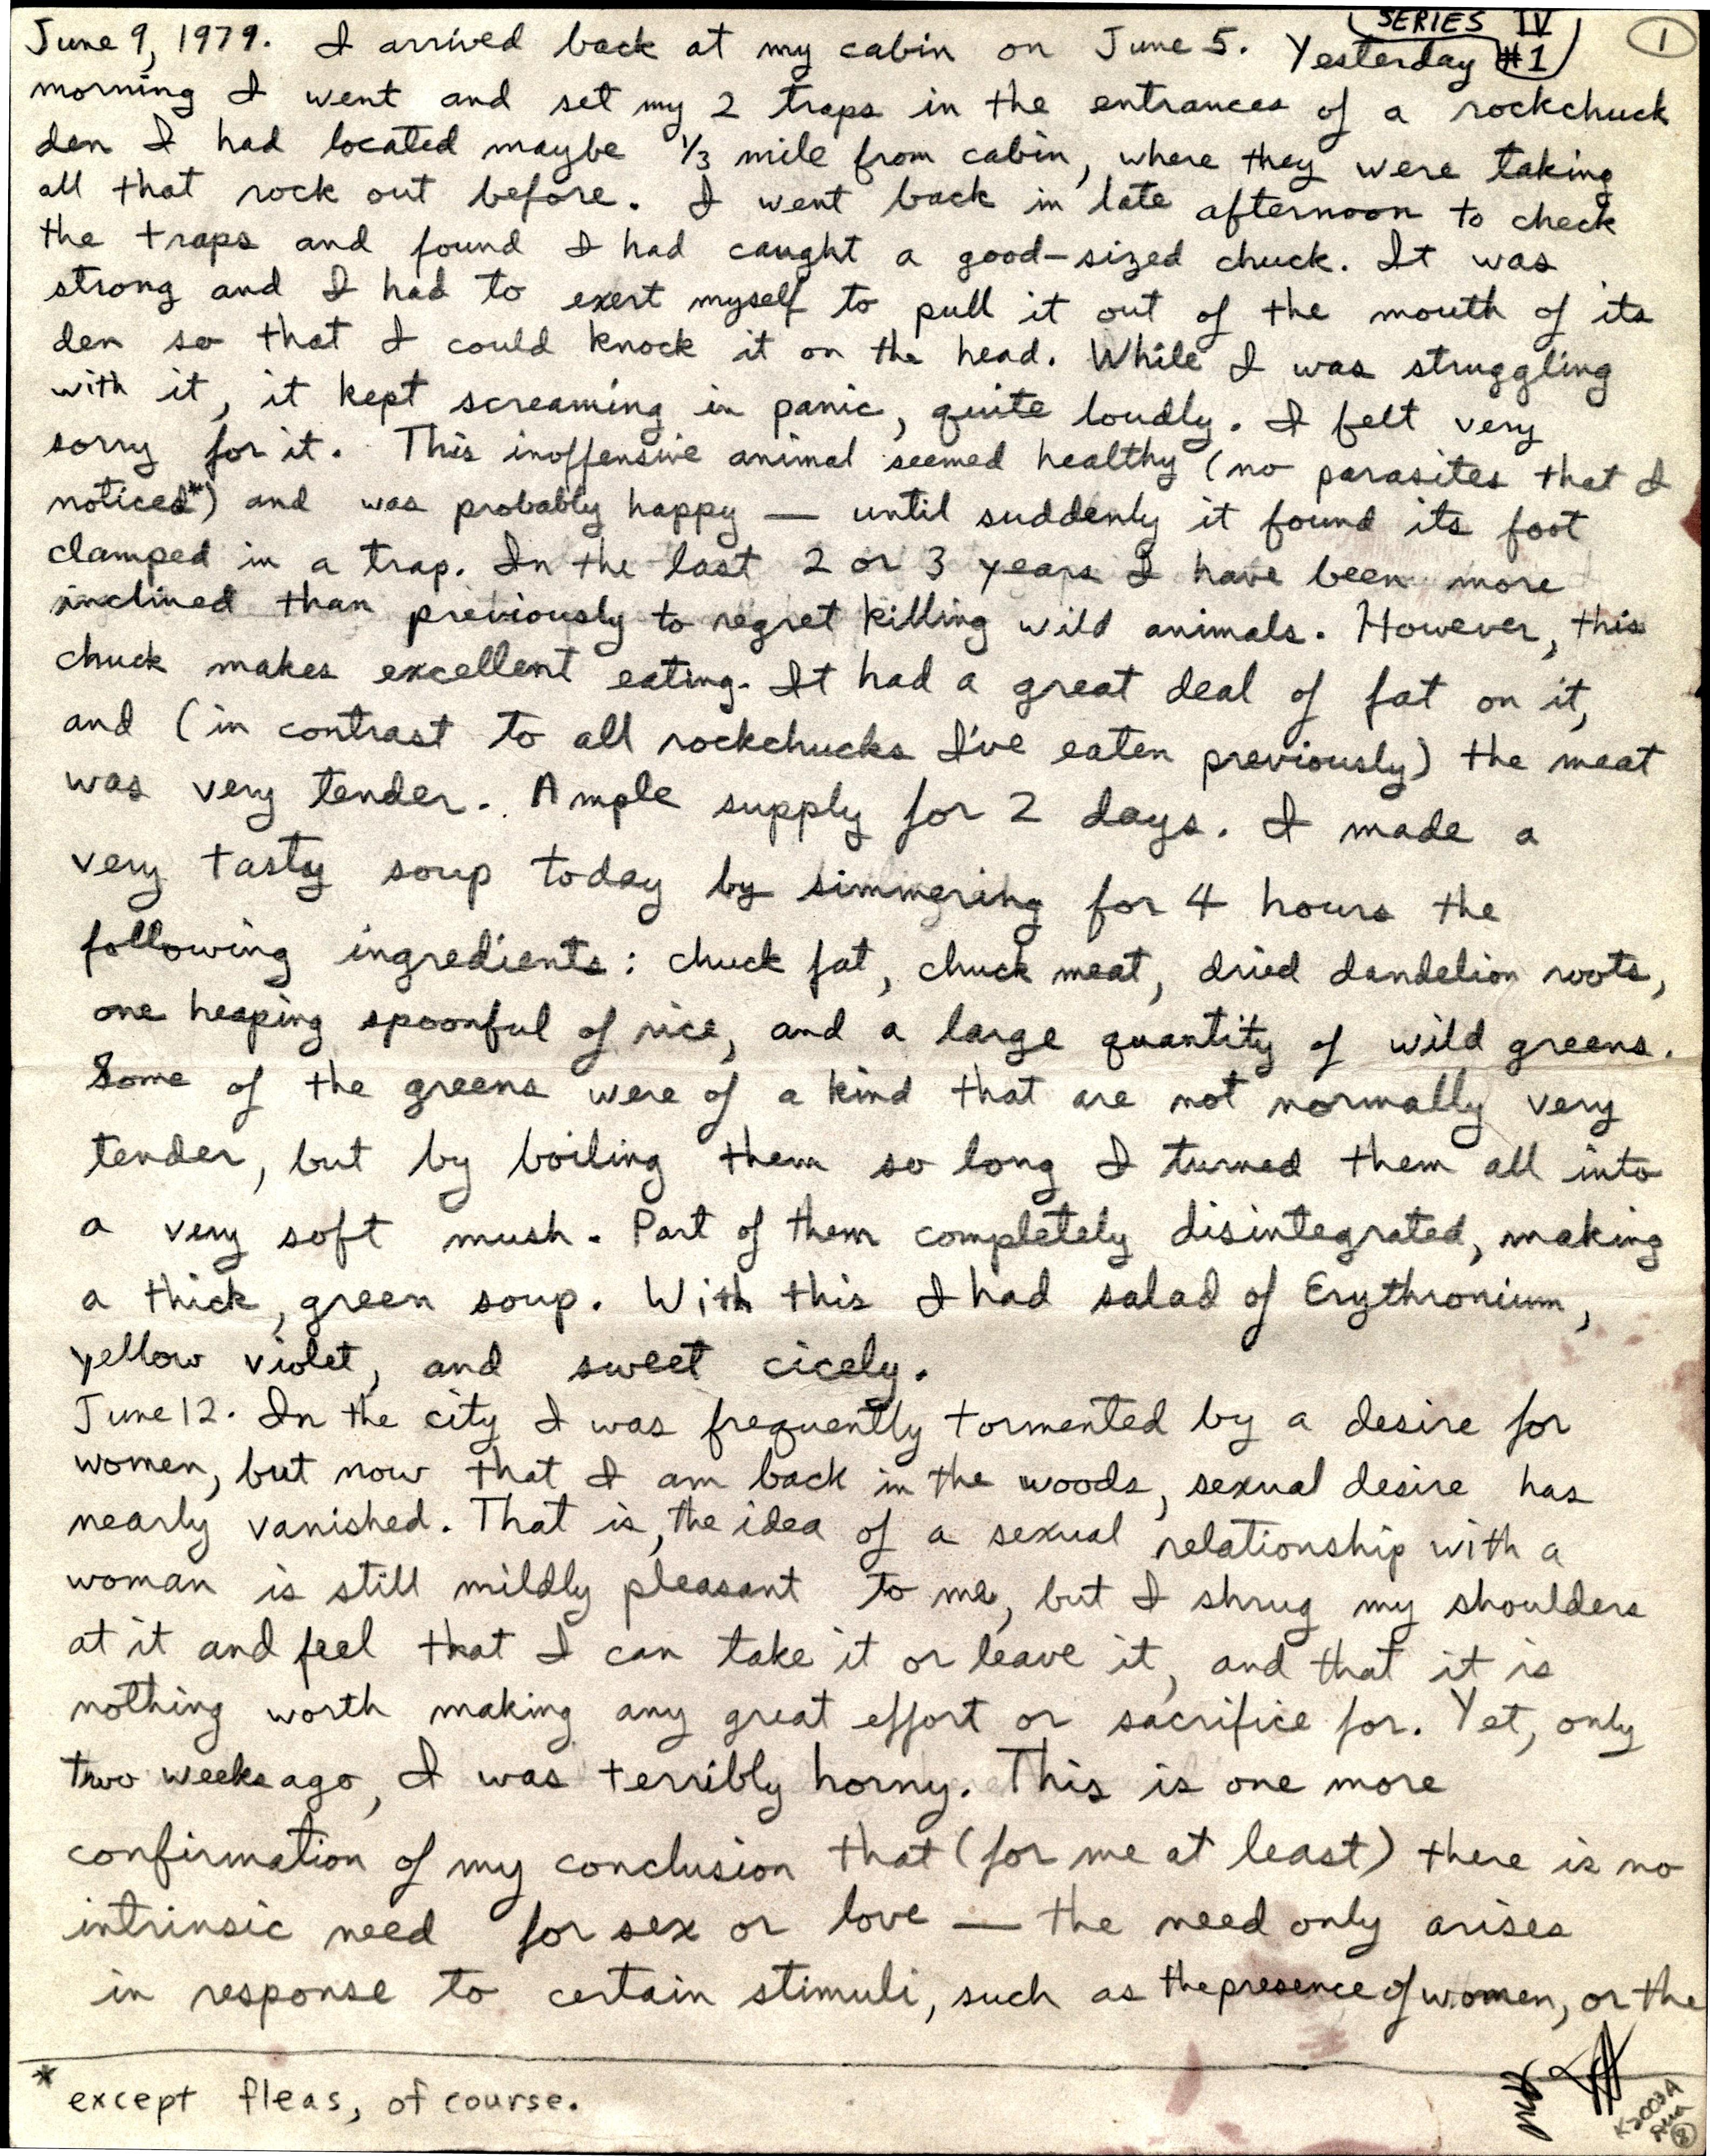 SERIES IV
#1
1
June 9, 1979. I arrived back at my cabin on June 5. Yesterday
morning I went and set my 2 traps in the entrances of a rockchuck
den I had located maybe 1/3 mile from cabin, where they were taking
all that rock out before. I went back in late afternoon to check
the traps and found I had caught a good-sized chuck. It was
strong and I had to exert myself to pull it out of the mouth of its
den so that I could knock it on the head. While I was struggling
with it, it kept screaming in panic, quite loudly. I felt very
sorry for it. This inoffensive animal seemed healthy (no parasites that I
noticed*) and was probably happy — until suddenly it found its foot
clamped in a trap. In the last 2 or 3 years I have been more
inclined than previously to regret killing wild animals. However, this
chuck makes excellent eating. It had a great deal of fat on it,
and (in contrast to all rockchucks I've eaten previously) the meat
was very tender. Ample supply for 2 days. I made a
very tasty soup today by simmering for 4 hours the
following ingredients: chuck fat, chuck meat, dried dandelion roots,
one heaping spoonful of rice, and a large quantity of wild greens.
Some of the greens were of a kind that are not normally very
tender, but by boiling them so long I turned them all into
a very soft mush. Part of them completely disintegrated, making
a thick, green soup. With this I had salad of Erythronium,
yellow violet, and sweet cicely.
June 12. In the city I was frequently tormented by a desire for
women, but now that I am back in the woods, sexual desire has
nearly vanished. That is, the idea of a sexual relationship with a
woman is still mildly pleasant to me, but I shrug my shoulders
at it and feel that I can take it or leave it, and that it is
nothing worth making any great effort or sacrifice for. Yet, only
two weeks ago, I was terribly horny. This is one more
confirmation of my conclusion that (for me at least) there is no
intrinsic need for sex or love — the need only arises
in response to certain stimuli, such as the presence of women, or the
* except fleas, of course.
K2003A
8